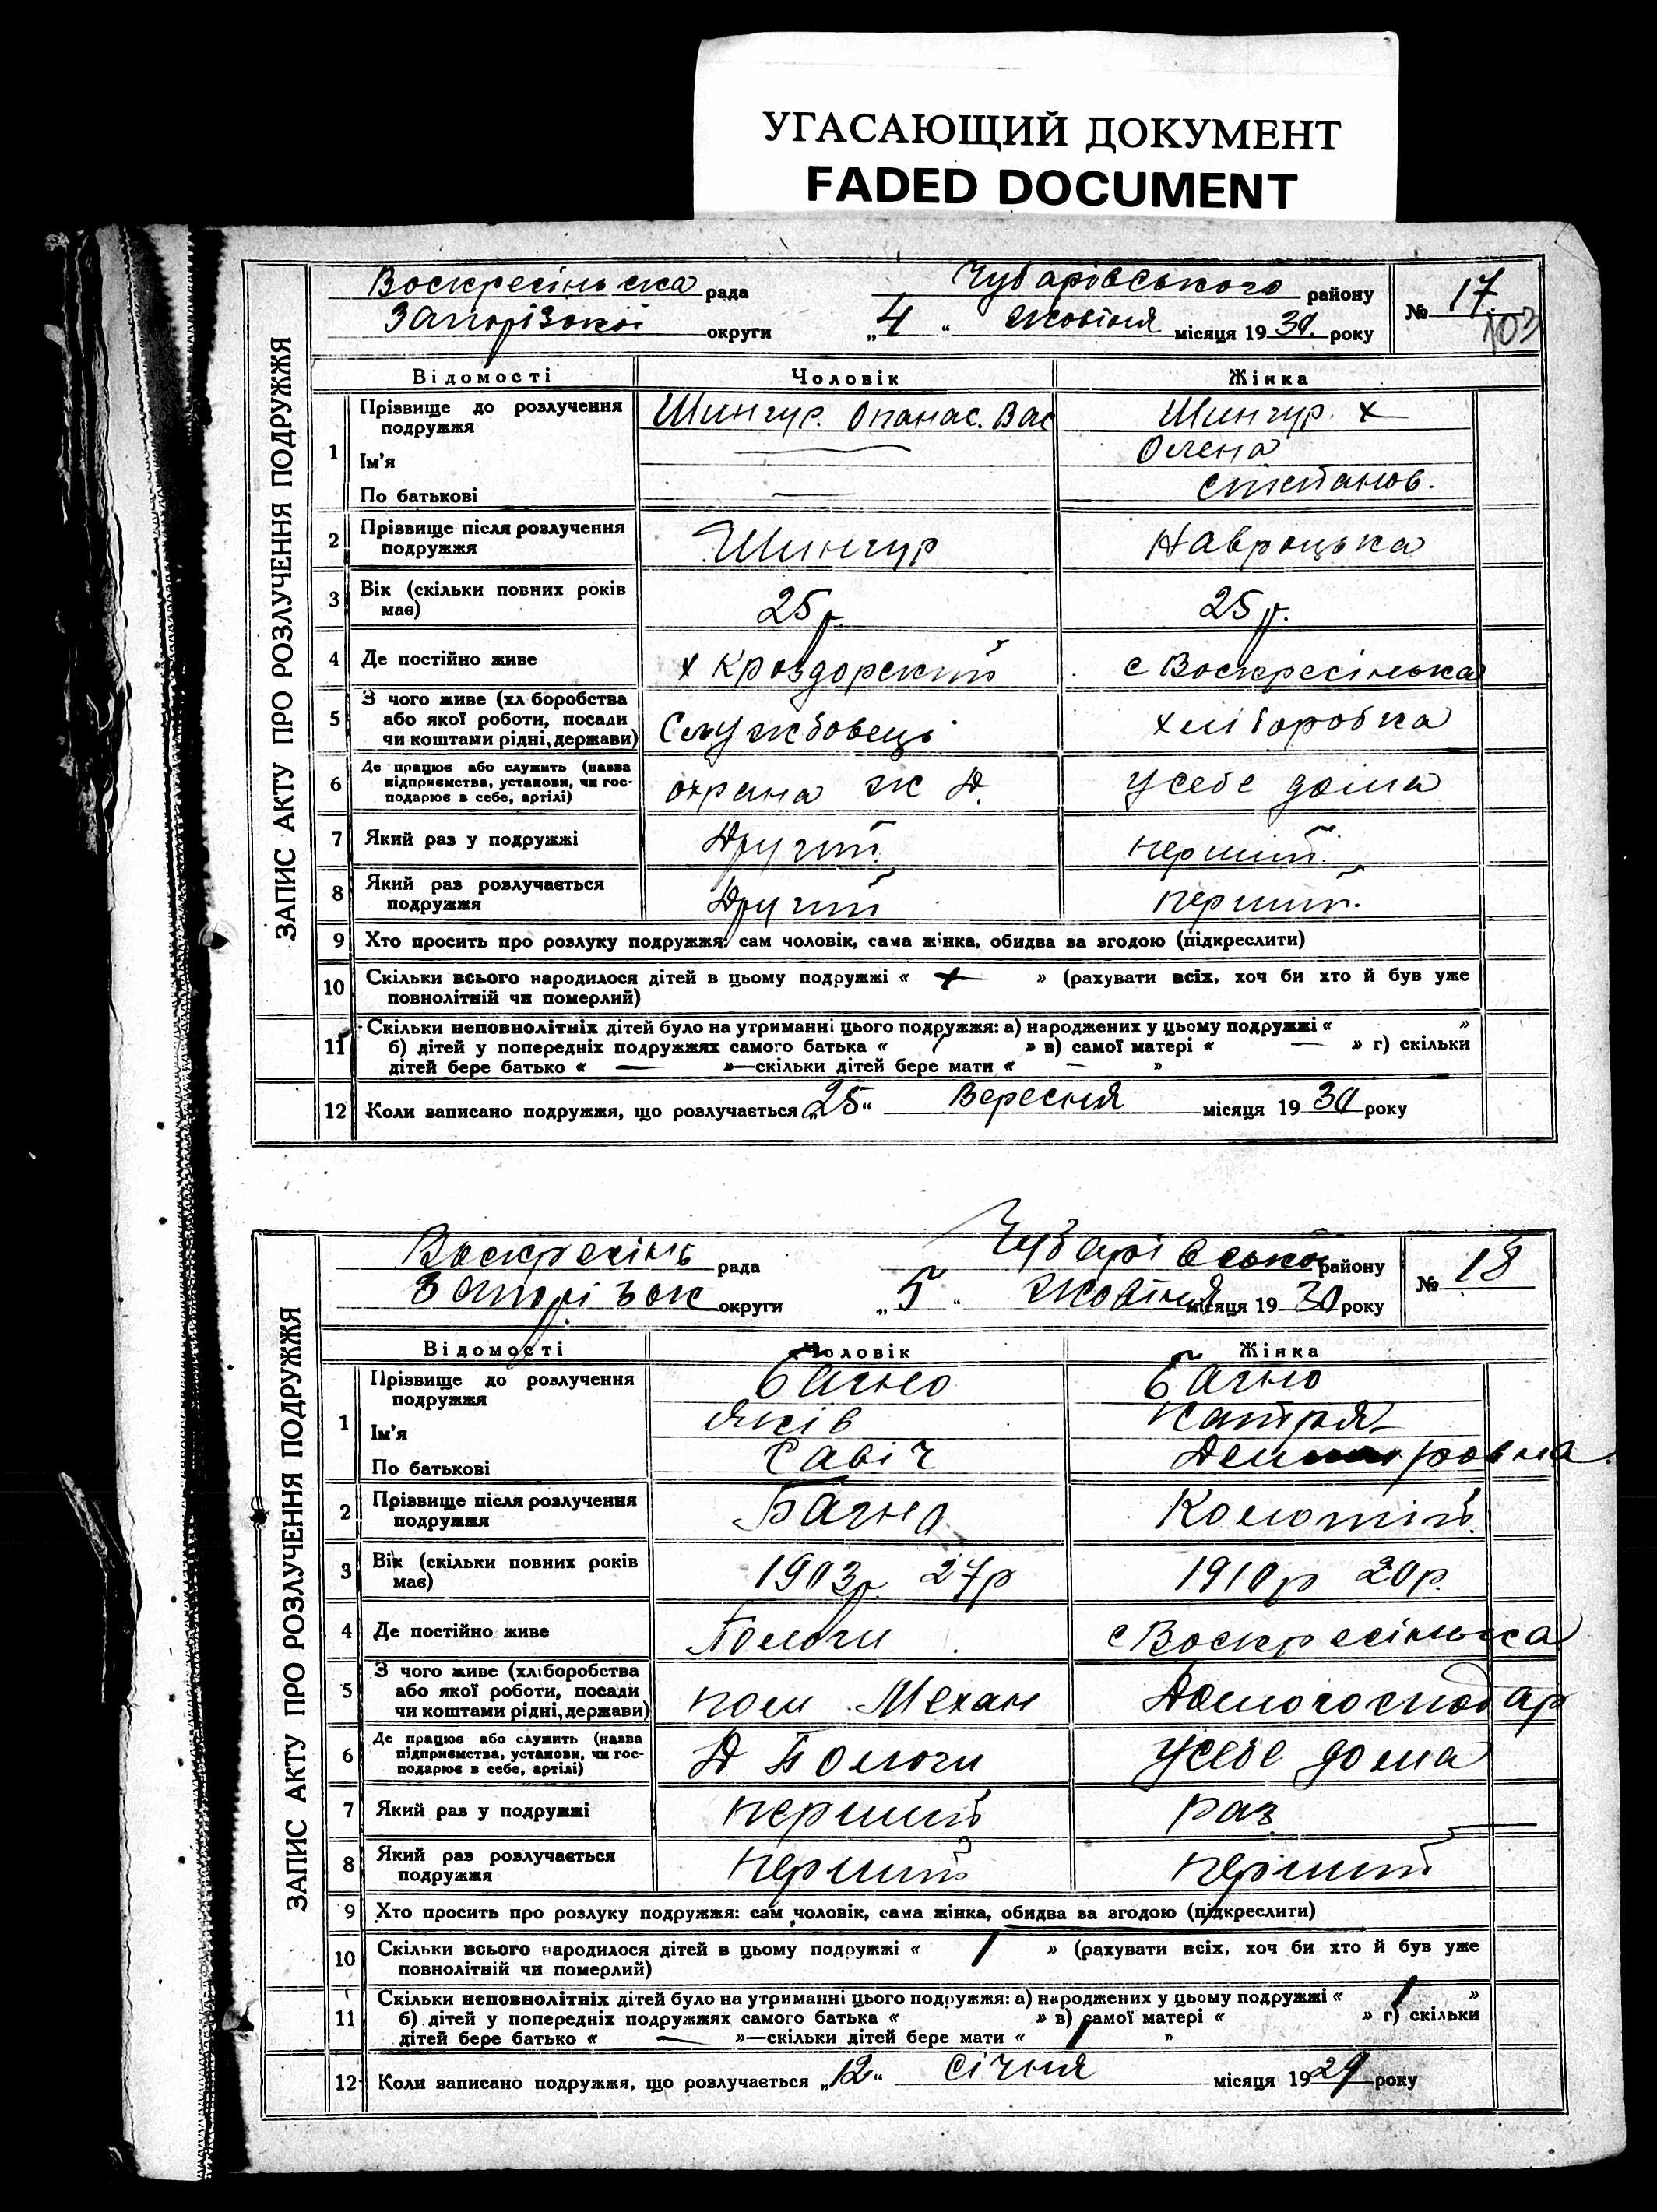 УГАСАЮЩИЙ ДОКУМЕНТ
FADED DOCUMENT
ЗАПИС АКТУ ПРО РОЗЛУЧЕННЯ ПОДРУЖЖЯ
Воскресіньска рада Чубарівського району № 17
Запорізької округи „4“ жовтня місяця 1930 року 103
Відомості Чоловік Жінка
1 Прізвище до розлучення подружжя Шингур. Опанас. Вас Шингур. х
Ім'я Олена
По батькові Степанов.
2 Прізвище після розлучення подружжя Шингур Навроцька
3 Вік (скільки повних років має) 25 р. 25 р.
4 Де постійно живе х с Воскресінька
5 З чого живе (хліборобства або якої роботи, посади чи коштами рідні, держави) Службовець хліборобка
6 Де працює або служить (назва підприємства, установи, чи господарює в себе, артілі) охрана ж д. у себе дома
7 Який раз у подружжі Другий. перший.
8 Який раз розлучається подружжя Другий перший.
9 Хто просить про розлуку подружжя: сам чоловік, сама жінка, обидва за згодою (підкреслити)
10 Скільки всього народилося дітей в цьому подружжі « » (рахувати всіх, хоч би хто й був уже
повнолітній чи померлий)
11 Скільки неповнолітніх дітей було на утриманні цього подружжя: а) народжених у цьому подружжі « »
б) дітей у попередніх подружжях самого батька « » в) самої матері « — » г) скільки
дітей бере батько « — »—скільки дітей бере мати « — »
12 Коли записано подружжя, що розлучається „25“ Вересня місяця 1930 року
ЗАПИС АКТУ ПРО РОЗЛУЧЕННЯ ПОДРУЖЖЯ
Воскресінь рада Чубарівсько району № 18
Запорізьк округи „5“ Жовтня місяця 1930 року
Відомості Чоловік Жінка
1 Прізвище до розлучення подружжя Багно Багно
Ім'я Яків Катря
По батькові Савіч
2 Прізвище після розлучення подружжя Багно Коломієць
3 Вік (скільки повних років має) 1903 р. 27 р 1910 р 20 р.
4 Де постійно живе Пологи с Воскресінька
5 З чого живе (хліборобства або якої роботи, посади чи коштами рідні, держави) пом Механ Домогосподар
6 Де працює або служить (назва підприємства, установи, чи господарює в себе, артілі) Д Пологи у себе дома
7 Який раз у подружжі перший раз
8 Який раз розлучається подружжя перший перший
9 Хто просить про розлуку подружжя: сам чоловік, сама жінка, обидва за згодою (підкреслити)
10 Скільки всього народилося дітей в цьому подружжі « / » (рахувати всіх, хоч би хто й був уже
повнолітній чи померлий)
11 Скільки неповнолітніх дітей було на утриманні цього подружжя: а) народжених у цьому подружжі « / »
б) дітей у попередніх подружжях самого батька « » в) самої матері « » г) скільки
дітей бере батько « — »—скільки дітей бере мати « / »
12 Коли записано подружжя, що розлучається „12“ Січня місяця 1929 року